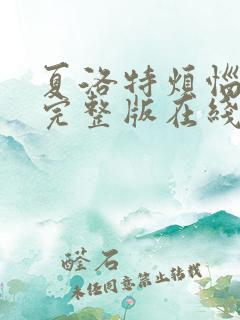 夏洛特烦恼
完整版在线
醛石
未经同意禁止转载